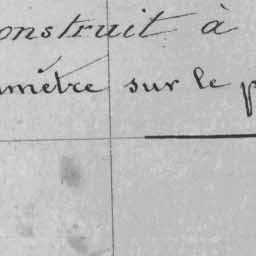 onstruit à
mètre sur le p